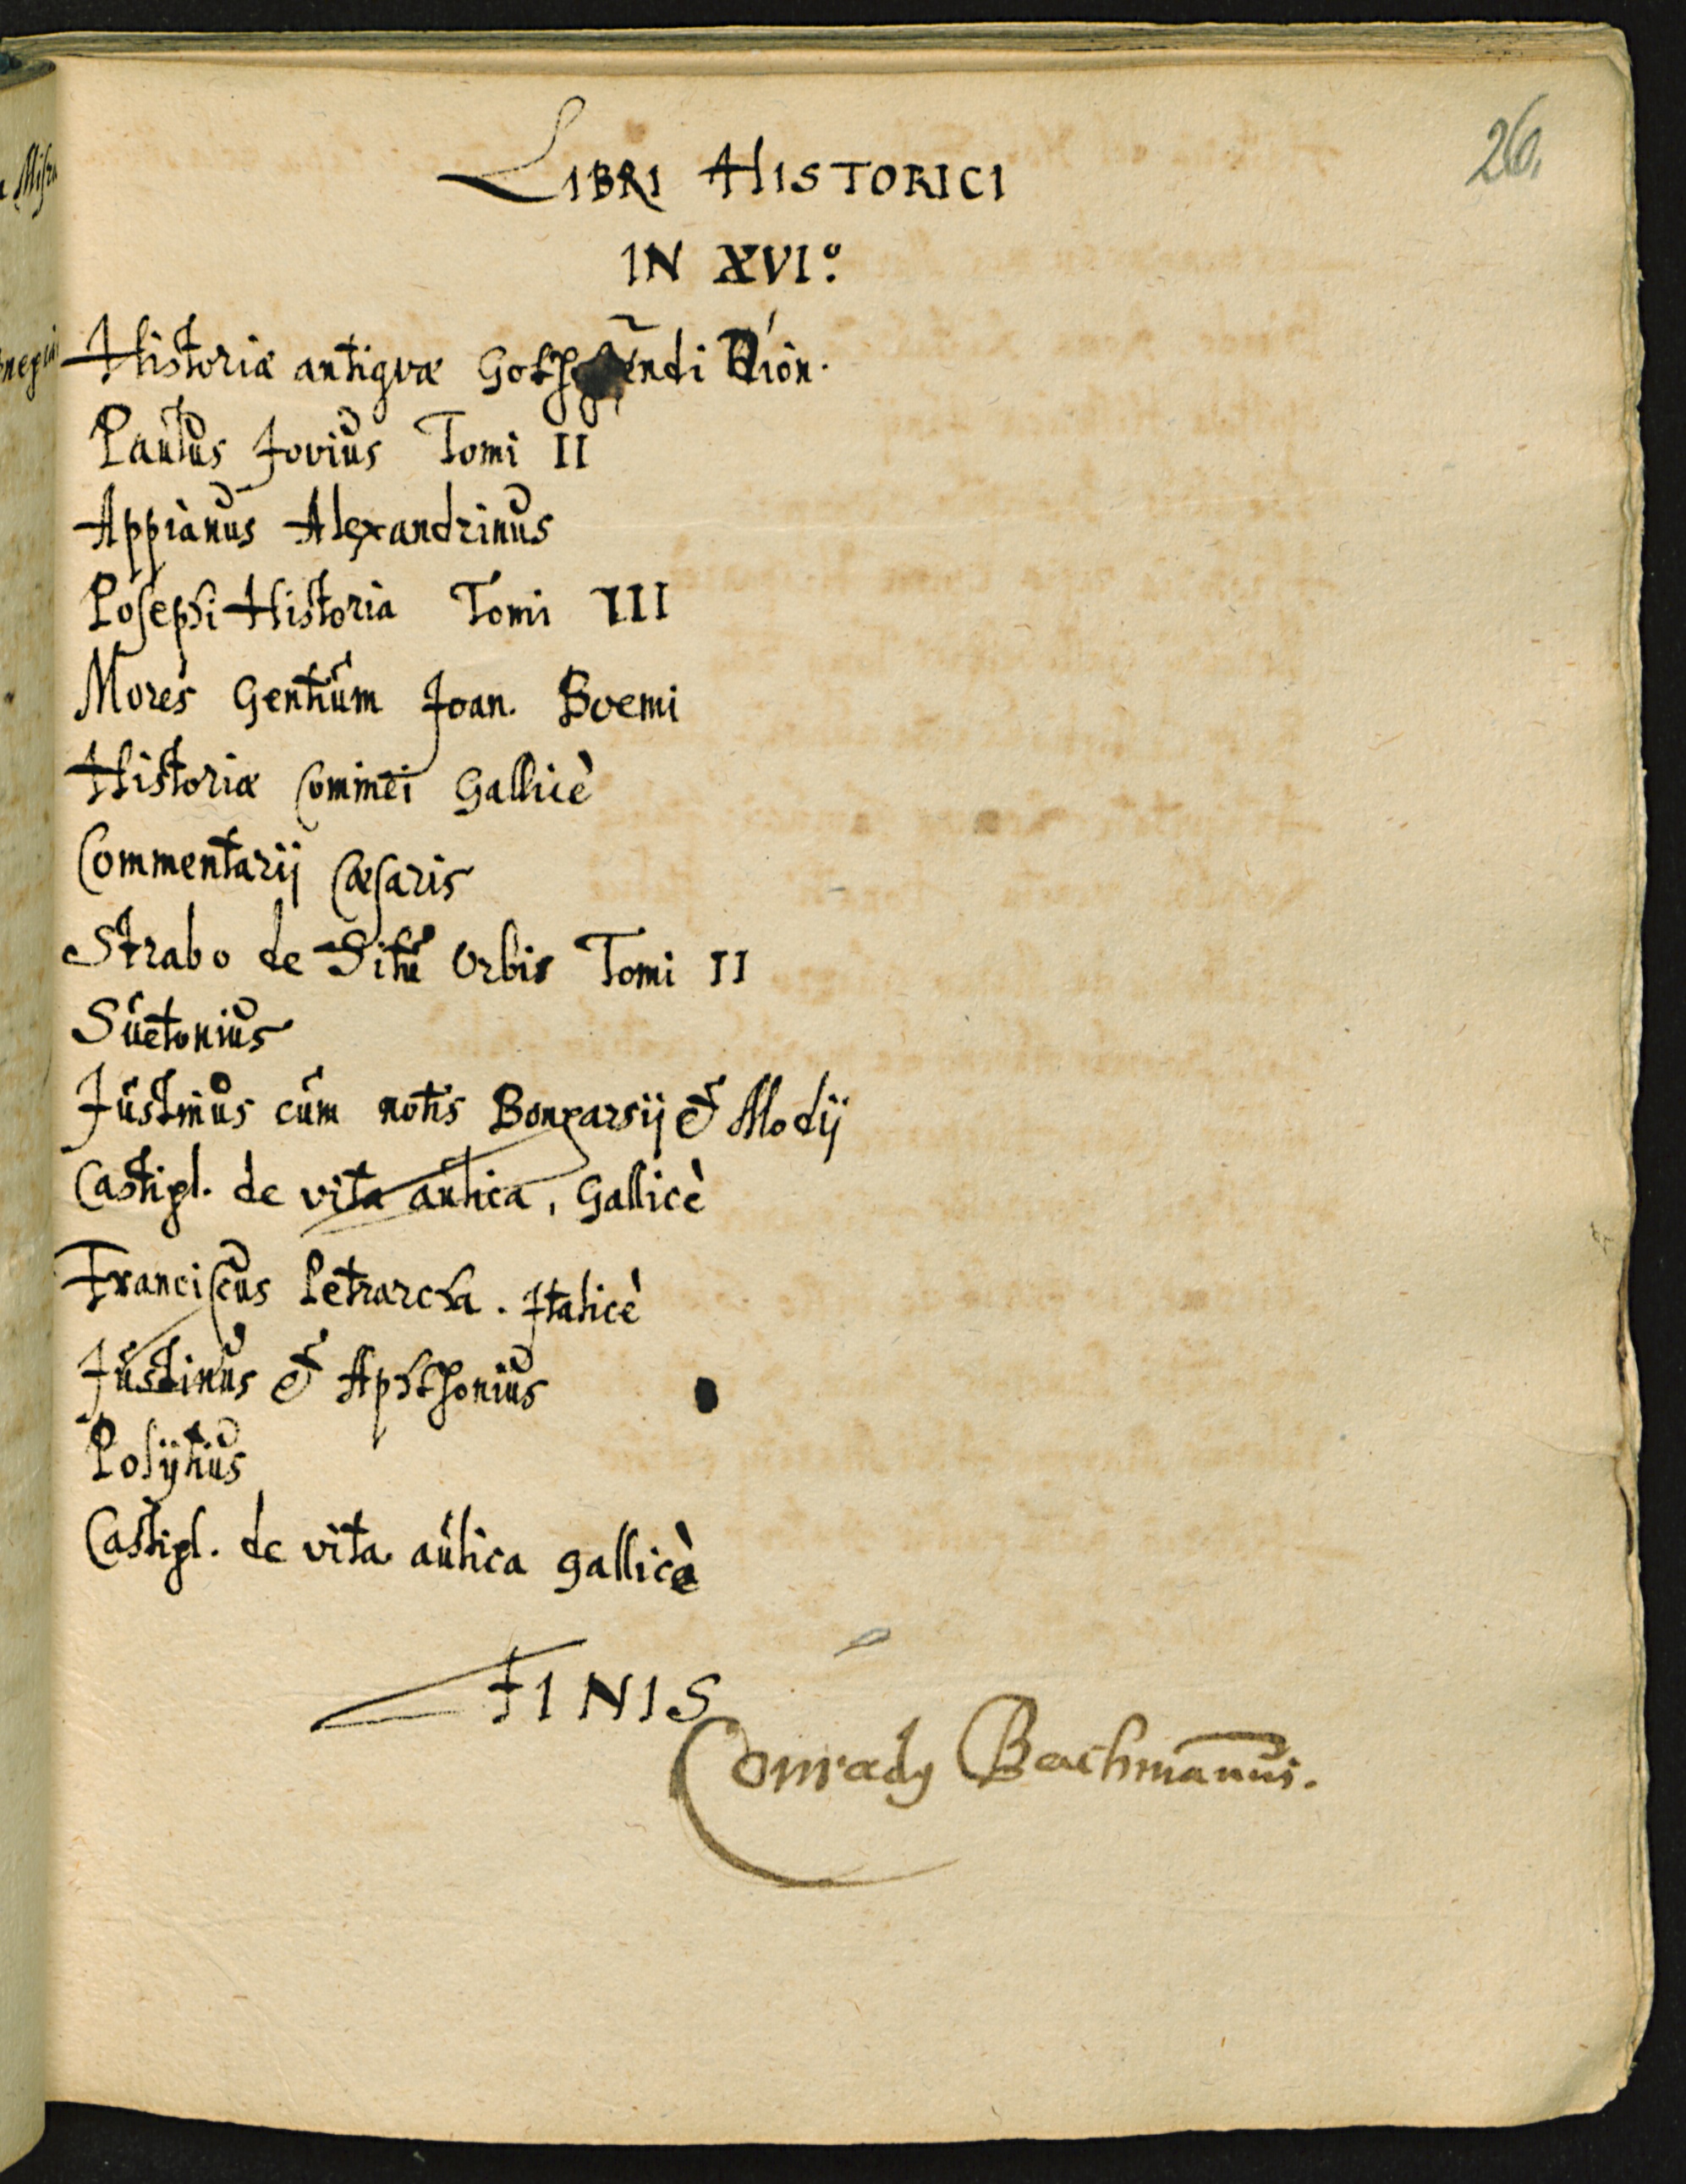 26.
LIBRI HISTORICI
IN XVI.º
Historiæ antiqvæ
Paulus Jovius Tomi II
Appianus Alexandrinus
Iosephi Historia Tomi III
Mores Gentium Joan. Boemi
Historiæ Cominei Gallicè
Commentarij Cæsaris
Strabo de Situ Orbis Tomi II
Suetonius
Justinus cum notis Bongarsij & Modij
Castigl. de vita aulica, Gallicè
Franciscus Petrarcha. Italicè
Justinus & Aphthonius
Castigl. de vita aulica gallicè
FINIS
Conradus Bachmannus.